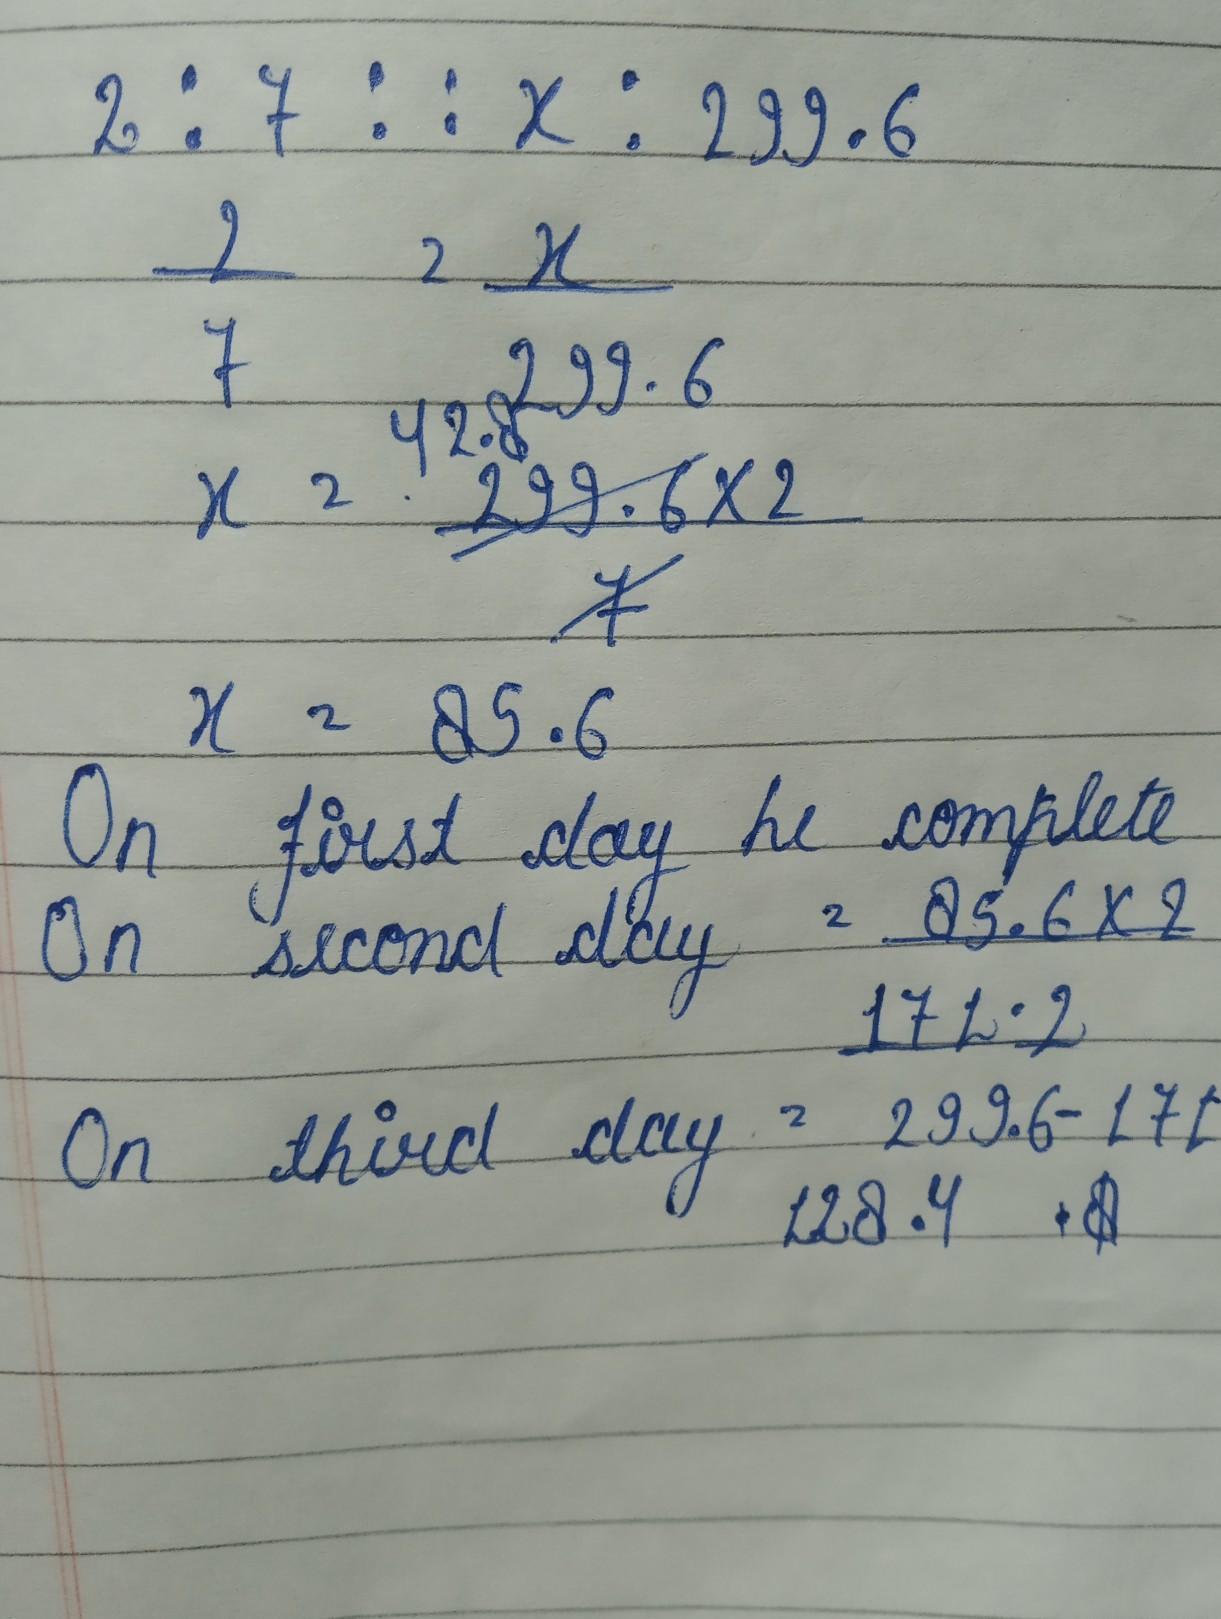 2 : 7 : : x : 299.6
2 = x
7 299.6
42.8
x = 299.6 x 2
7
x = 85.6
On first day he complete
On second day = 85.6 x 2
171.2
On third day = 299.6 - 171
128.4